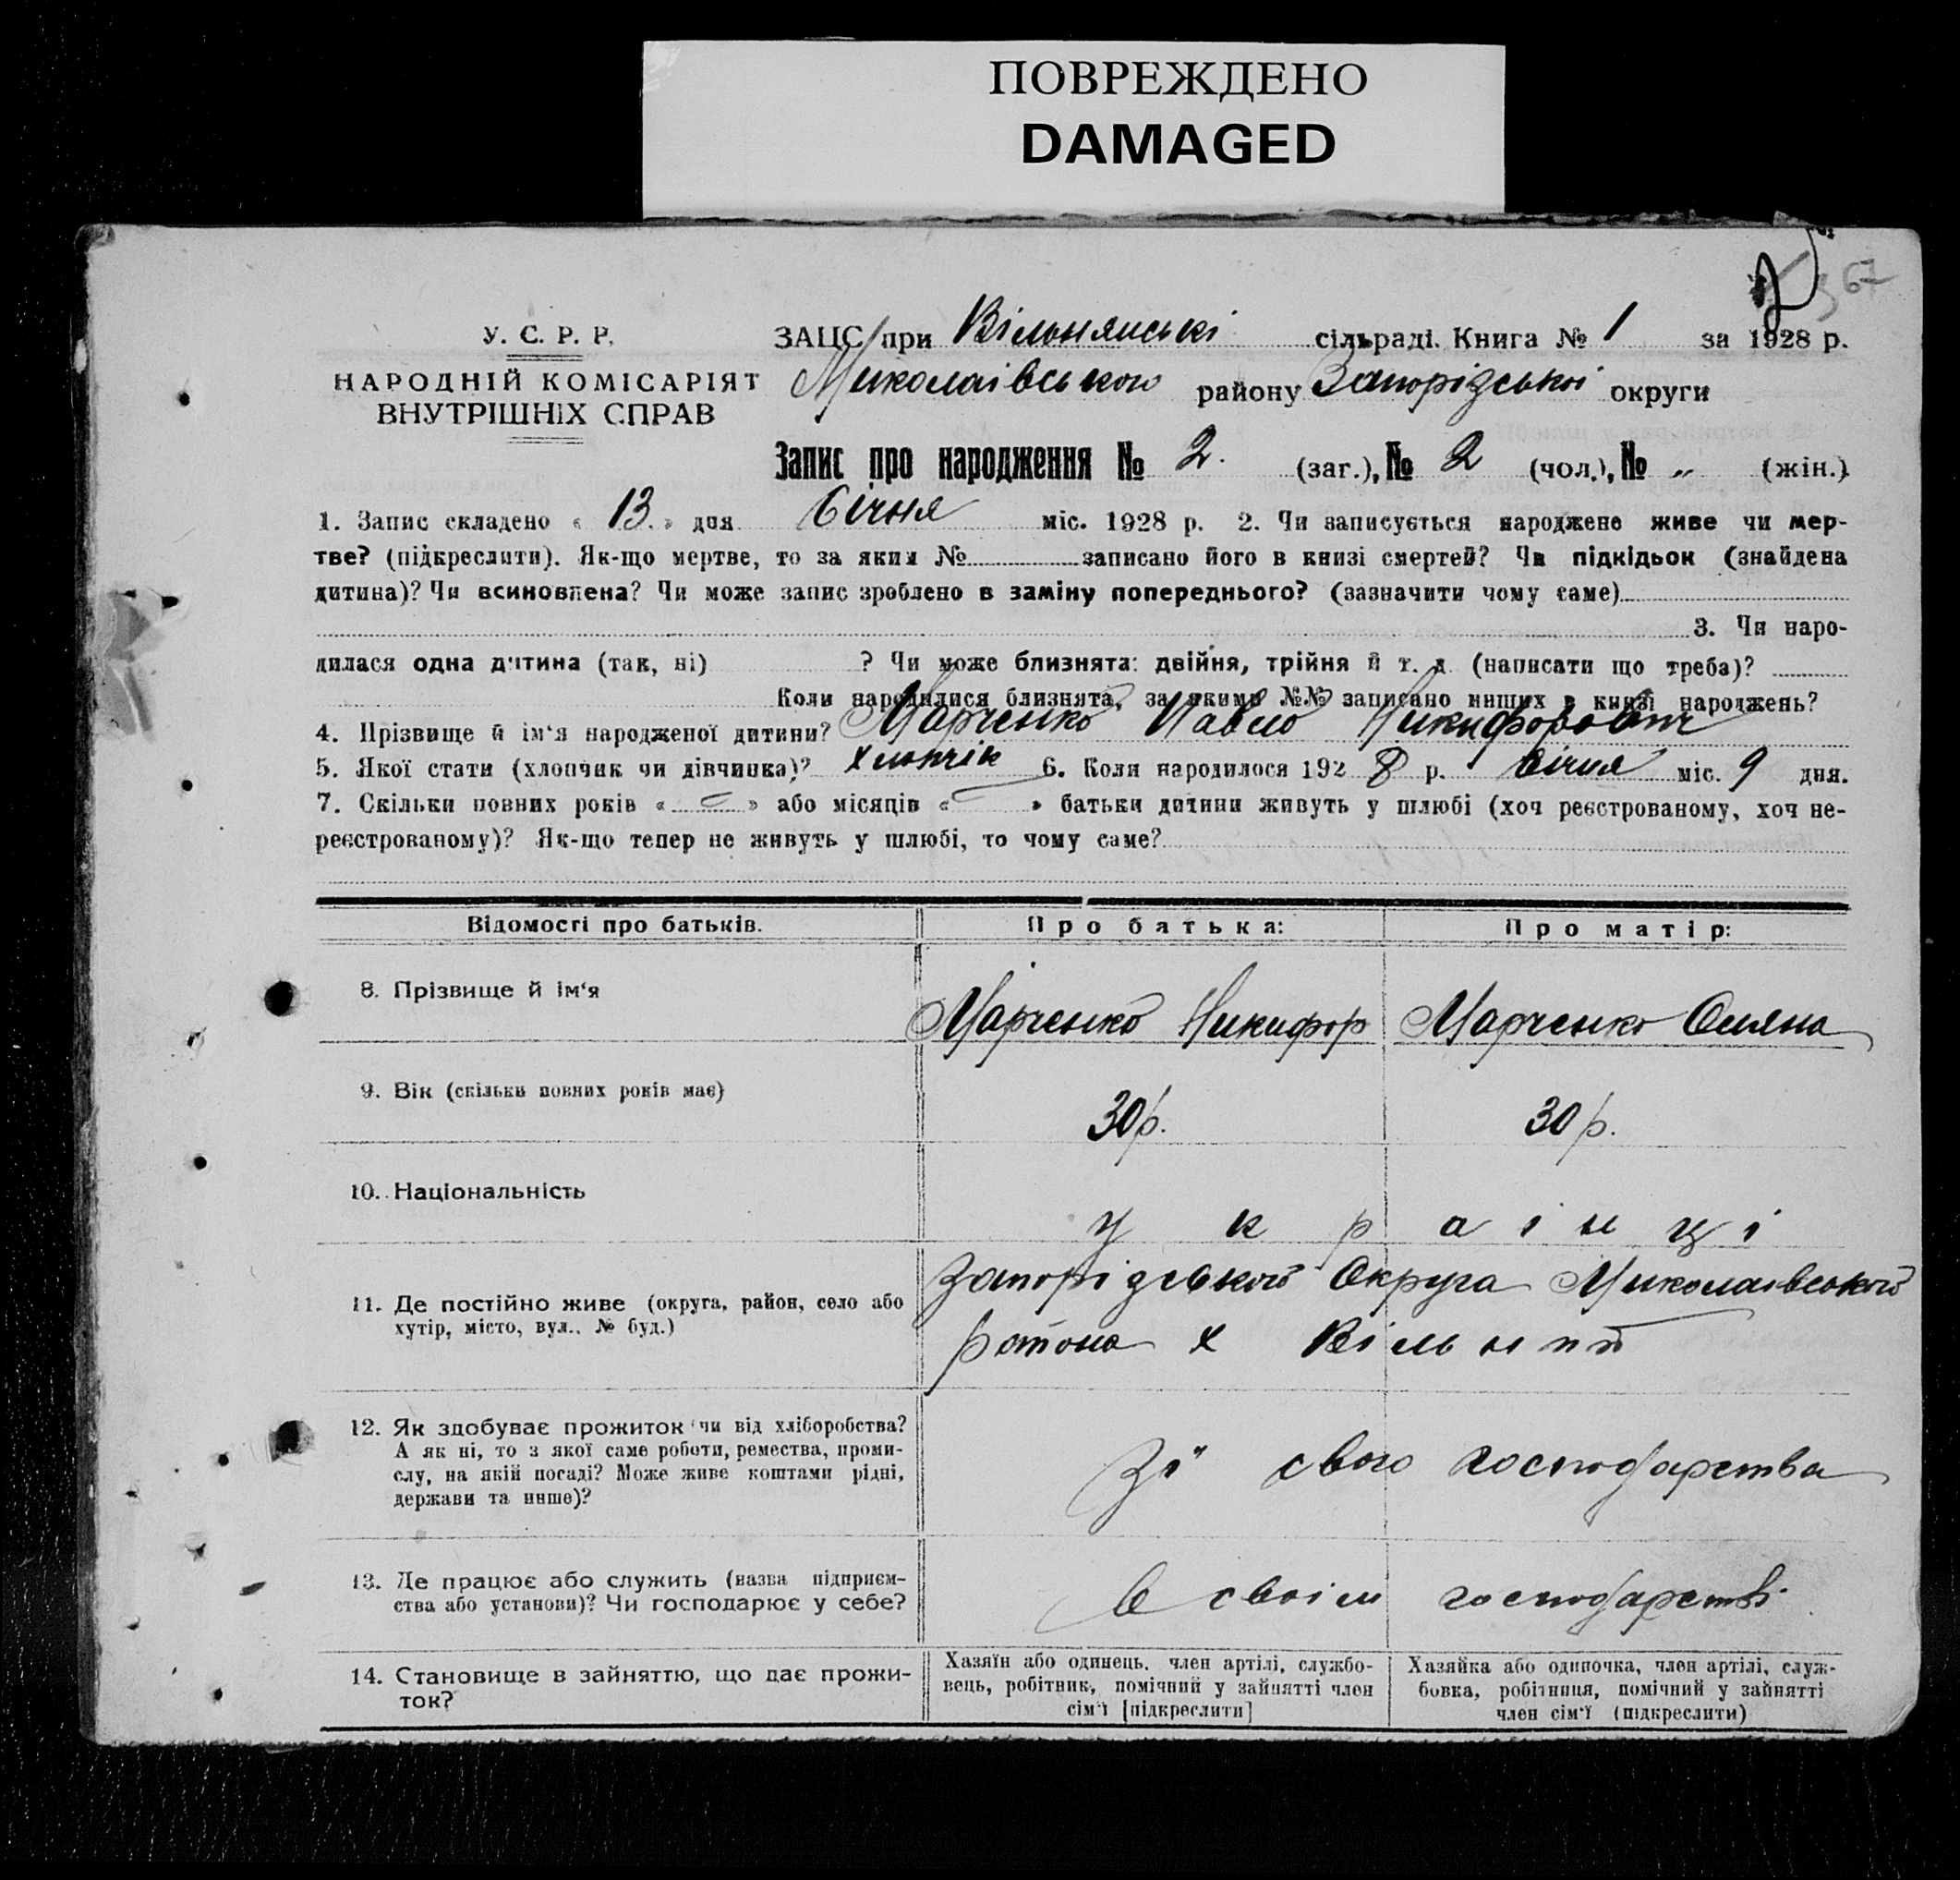 ПОВРЕЖДЕНО
DAMAGED
367
У. С. Р. Р.
НАРОДНІЙ КОМІСАРІЯТ
ВНУТРІШНІХ СПРАВ
ЗАЦС при Вільнянські сільраді. Книга № 1 за 1928 р.
Миколаівського району Запорізської округи
Запис про народження № 2. (заг.), № 2 (чол.), № „ (жін.)
1. Запис складено « 13. » дня Січня міс. 1928 р. 2. Чи записується народжене живе чи мер-
тве? (підкреслити). Як-що мертве, то за яким № записано його в книзі смертей? Чи підкідьок (знайдена
дитина)? Чи всиновлена? Чи може запис зроблено в заміну попереднього? (зазначити чому саме)
3. Чи наро-
дилася одна дитина (так, ні) ? Чи може близнята: двійня, трійня й т. д. (написати що треба)?
Коли народилися близнята, за якими №№ записано инших в книзі народжень?
4. Прізвище й ім‘я народженої дитини? Марченко Павло Никифорович
5. Якої стати (хлопчик чи дівчинка)? хлопчік 6. Коли народилося 1928 р. Січня міс. 9 дня.
7. Скільки повних років « » або місяців « » батьки дитини живуть у шлюбі (хоч реєстрованому, хоч не-
реєстрованому)? Як-що тепер не живуть у шлюбі, то чому саме?
Відомості про батьків.
Про батька:
Про матір:
8. Прізвище й ім‘я
Марченко Никифор
Марченко Оляна
9. Вік (скільки повних років має)
30 р.
30 р.
10. Національність
українці
11. Де постійно живе (округа, район, село або
хутір, місто, вул., № буд.)
Запорізського Округа Миколаівського
района х Вільний
12. Як здобуває прожиток чи від хліборобства?
А як ні, то з якої саме роботи, ремества, проми-
слу, на якій посаді? Може живе коштами рідні,
держави та инше)?
Зі свого господарства
13. Де працює або служить (назва підприєм-
ства або установи)? Чи господарює у себе?
в своім господарстві
14. Становище в зайняттю, що дає прожи-
ток?
Хазяїн або одинець, член артілі, службо-
вець, робітник, помічний у зайнятті член
сім‘ї [підкреслити]
Хазяйка або одиночка, член артілі, служ-
бовка, робітниця, помічний у зайнятті
член сім‘ї (підкреслити)